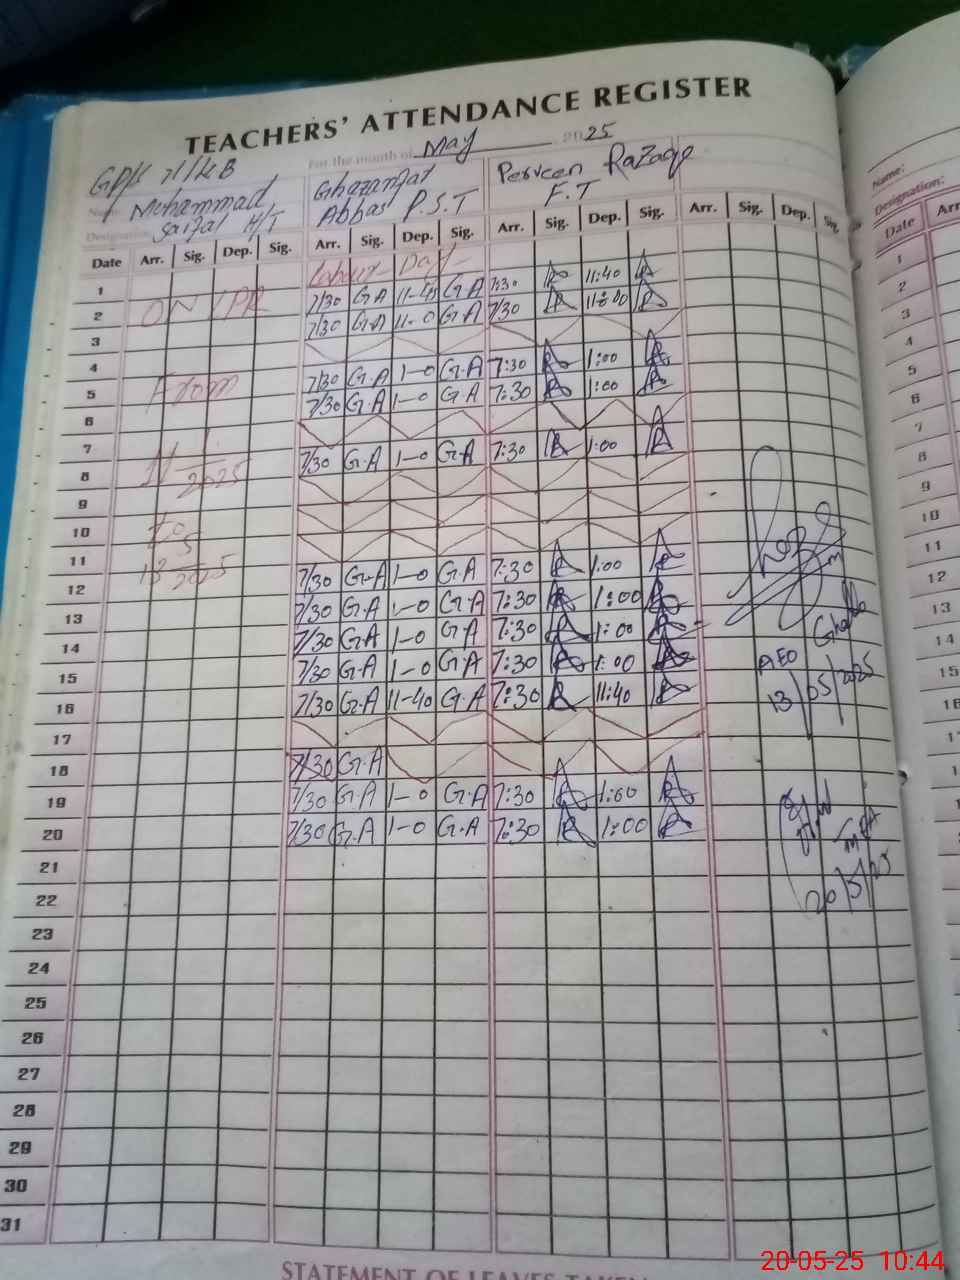 TEACHERS' ATTENDANCE REGISTER
For the month of May 2025
Muhammad H/T
Ghazanfar Abbas P.S.T
Perveen Razaqe F.T
Date Arr. Sig. Dep. Sig. Arr. Sig. Dep. Sig. Arr. Sig. Dep. Sig. Arr. Sig. Dep. Sig.
Labour Day
1
7/30 G.A 11-45 G.A 7:30 11:40
2 ON LPR
7/30 G.A 11-0 G.A 7/30
3
4
7/30 G.A 1-0 G.A 7:30 1:00
5 From
7/30 G.A 1-0 G.A 7:30 1:00
6
7
7/30 G.A 1-0 G.A 7:30 1:00
8 2025
9
10 to
11
7/30 G.A 1-0 G.A 7:30 1:00
12 2025
7/30 G.A 1-0 G.A 7:30 1:00
13
7/30 G.A 1-0 G.A 7:30 1:00
14
7/30 G.A 1-0 G.A 7:30 1:00
15
7/30 G.A 11-40 G.A 7:30 11:40
16
17
7/30 G.A
18
7/30 G.A 1-0 G.A 7:30 1:00
19
7/30 G.A 1-0 G.A 7:30 1:00
20
21
22
23
24
25
26
27
28
29
30
31
AEO
13/05/2025
20/5/25
STATEMENT OF LEAVES TAKEN
Name:
Designation:
Date Arr
1
2
3
4
5
6
7
8
9
10
11
12
13
14
15
20-05-25 10:44